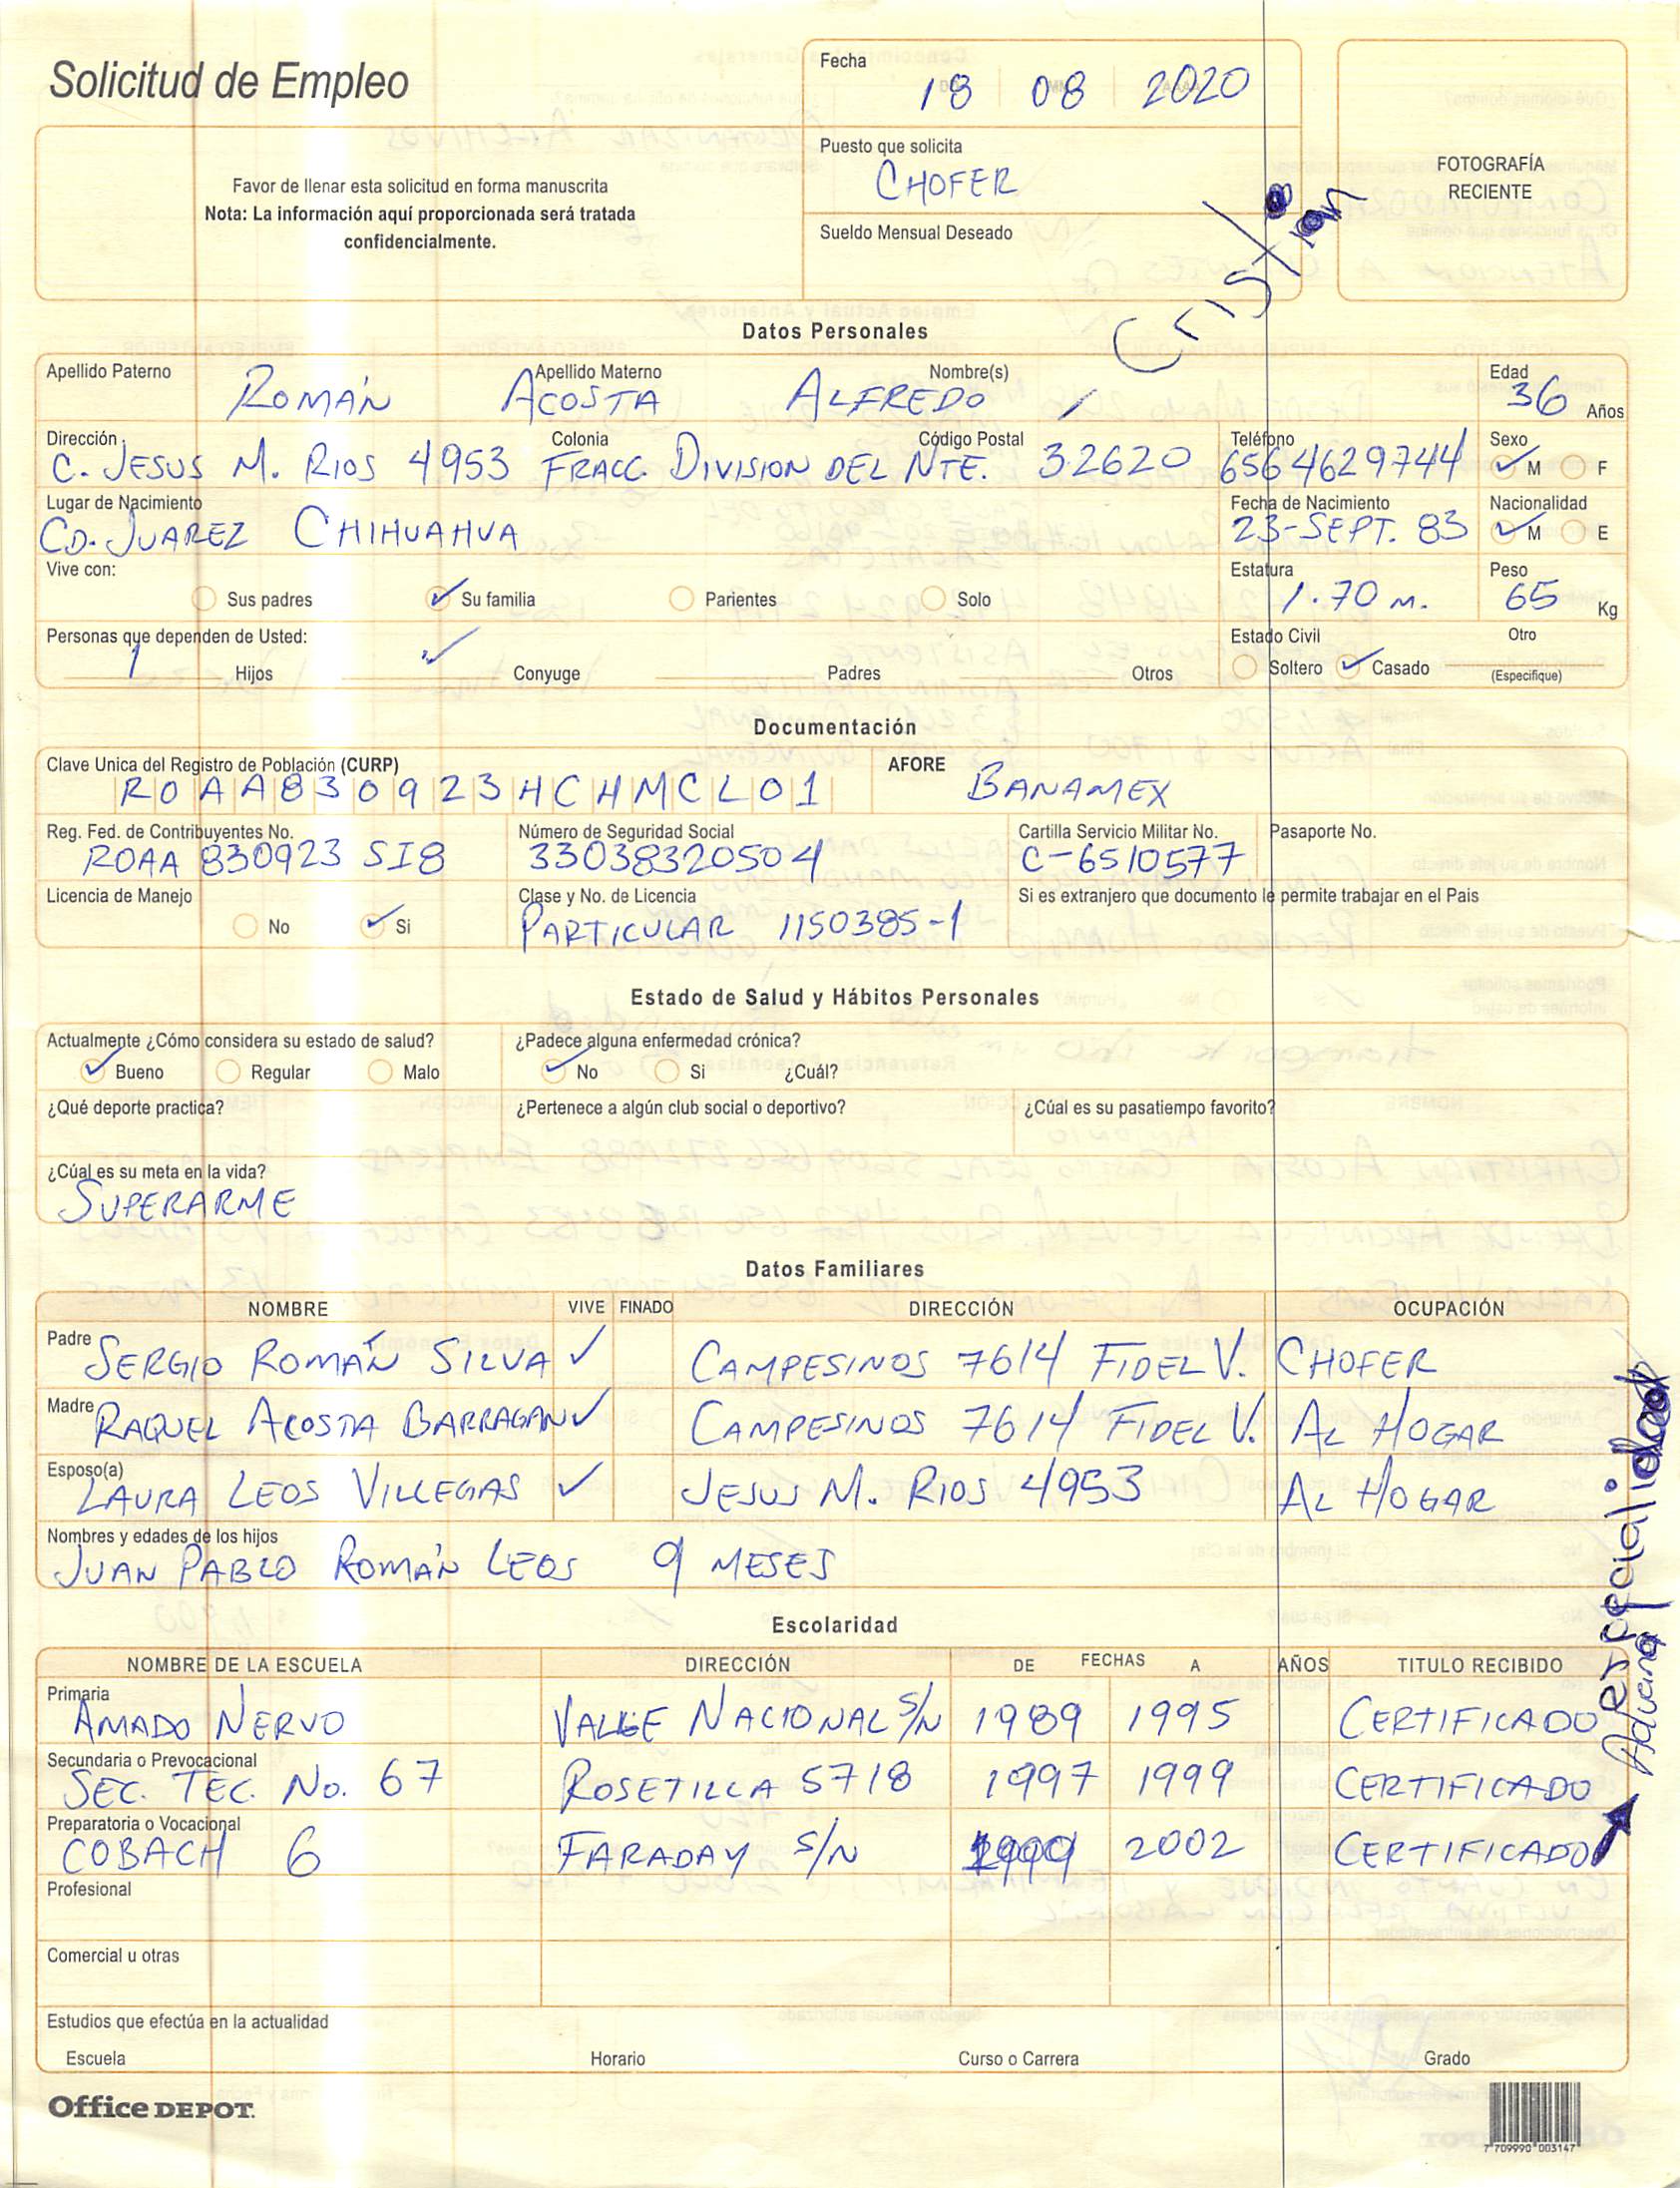 Solicitud de Empleo
Favor de llenar esta solicitud en forma manuscrita
Nota: La información aquí proporcionada será tratada
confidencialmente.
Fecha
18 08 2020
Puesto que solicita
CHOFER
Sueldo Mensual Deseado
FOTOGRAFÍA
RECIENTE
Cristian
Datos Personales
Apellido Paterno Apellido Materno Nombre(s) Edad
ROMÁN ACOSTA ALFREDO 36 Años
Dirección Colonia Código Postal Teléfono Sexo
C. JESUS M. RIOS 4953 FRACC. DIVISION DEL NTE. 32620 656 4629744 M F
Lugar de Nacimiento Fecha de Nacimiento Nacionalidad
CD. JUAREZ CHIHUAHUA 23-SEPT. 83 M E
Vive con: Estatura Peso
Sus padres Su familia Parientes Solo 1.70 M. 65 Kg
Personas que dependen de Usted: Estado Civil Otro
1 Hijos Conyuge Padres Otros Soltero Casado (Especifique)
Documentación
Clave Unica del Registro de Población (CURP) AFORE
ROAA830923HCHMCL01 BANAMEX
Reg. Fed. de Contribuyentes No. Número de Seguridad Social Cartilla Servicio Militar No. Pasaporte No.
ROAA 830923 SI8 33038320504 C-6510577
Licencia de Manejo Clase y No. de Licencia Si es extranjero que documento le permite trabajar en el Pais
No Si PARTICULAR 1150385-1
Estado de Salud y Hábitos Personales
Actualmente ¿Cómo considera su estado de salud? ¿Padece alguna enfermedad crónica?
Bueno Regular Malo No Si ¿Cuál?
¿Qué deporte practica? ¿Pertenece a algún club social o deportivo? ¿Cúal es su pasatiempo favorito?
¿Cúal es su meta en la vida?
SUPERARME
Datos Familiares
NOMBRE VIVE FINADO DIRECCIÓN OCUPACIÓN
Padre SERGIO ROMÁN SILVA CAMPESINOS 7614 FIDEL V. CHOFER
Madre RAQUEL ACOSTA BARRAGAN CAMPESINOS 7614 FIDEL V. AL HOGAR
Esposo(a)
LAURA LEOS VILLEGAS JESUS M. RIOS 4953 AL HOGAR
Nombres y edades de los hijos
JUAN PABLO ROMÁN LEOS 9 MESES
Escolaridad
NOMBRE DE LA ESCUELA DIRECCIÓN DE FECHAS A AÑOS TITULO RECIBIDO
Primaria
AMADO NERVO VALLE NACIONAL S/N 1989 1995 CERTIFICADO
Secundaria o Prevocacional
SEC. TEC. No. 67 ROSETILLA 5718 1997 1999 CERTIFICADO
Preparatoria o Vocacional
COBACH 6 FARADAY S/N 1999 2002 CERTIFICADO
especialidad
Aduana
Profesional
Comercial u otras
Estudios que efectúa en la actualidad
Escuela Horario Curso o Carrera Grado
Office DEPOT.
7 709990 003147